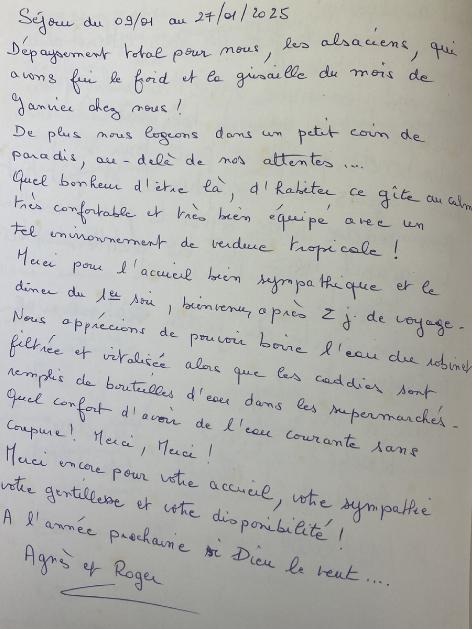 Séjour du 09/01 au 27/01/2025
Dépaysement total pour nous, les alsaciens, qui
avons fui le froid et la grisaille du mois de
Janvier chez nous !
De plus nous logeons dans un petit coin de
paradis, au-delà de nos attentes....
Quel bonheur d'être là, d'habiter ce gîte au calme
très confortable et très bien équipé avec un
tel environnement de verdure tropicale !
Merci pour l'accueil bien sympathique et le
dîner du 1er soir, bienvenu, après 2 j. de voyage.
Nous apprécions de pouvoir boire l'eau du robinet
filtrée et vitalisée alors que les caddies sont
remplis de bouteilles d'eau dans les supermarchés.
Quel confort d'avoir de l'eau courante sans
coupure ! Merci, Merci !
Merci encore pour votre accueil, votre sympathie
votre gentillesse et votre disponibilité !
A l'année prochaine si Dieu le veut....
Agnès et Roger